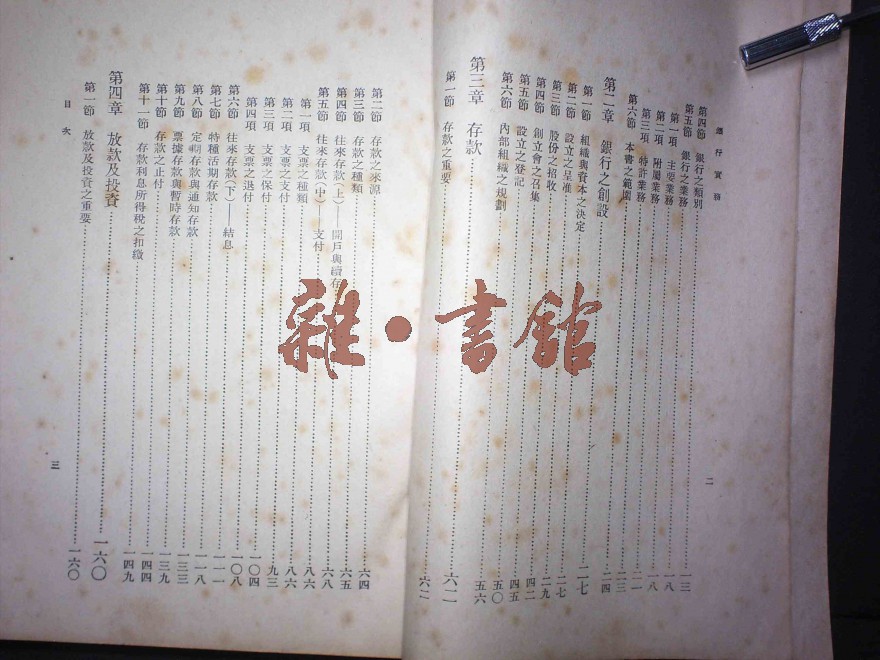 銀行實務
二
第四節 銀行之類別……一三
第五節 銀行之業務……一八
第一項 主要業務……一八
第二項 附屬業務……二一
第三項 特許業務……二三
第六節 本書之範圍……二四
第二章 銀行之創設……二七
第一節 組織與資本之決定……二七
第二節 設立之呈准……二九
第三節 股份之招收……四二
第四節 創立會之召集……四五
第五節 設立之登記……五〇
第六節 內部組織之規劃……五六
第三章 存款……六二
第一節 存款之重要……六二
第二節 存款之來源……六四
第三節 存款之種類……六五
第四節 往來存款(上)——開戶與續存……六八
第五節 往來存款(中)——支付……八六
第一項 支票之種類……八六
第二項 支票之支付……九三
第三項 支票之保付……一〇四
第四項 支票之退付……一〇八
第六節 往來存款(下)——結息……一一一
第七節 特種活期存款……一一八
第八節 定期存款與通知存款……一三三
第九節 票據存款與暫時存款……一三九
第十節 存款之止付……一四四
第十一節 存款利息所得稅之扣繳……一四九
第四章 放款及投資……一六〇
第一節 放款及投資之重要……一六〇
目次
三
雜·書館